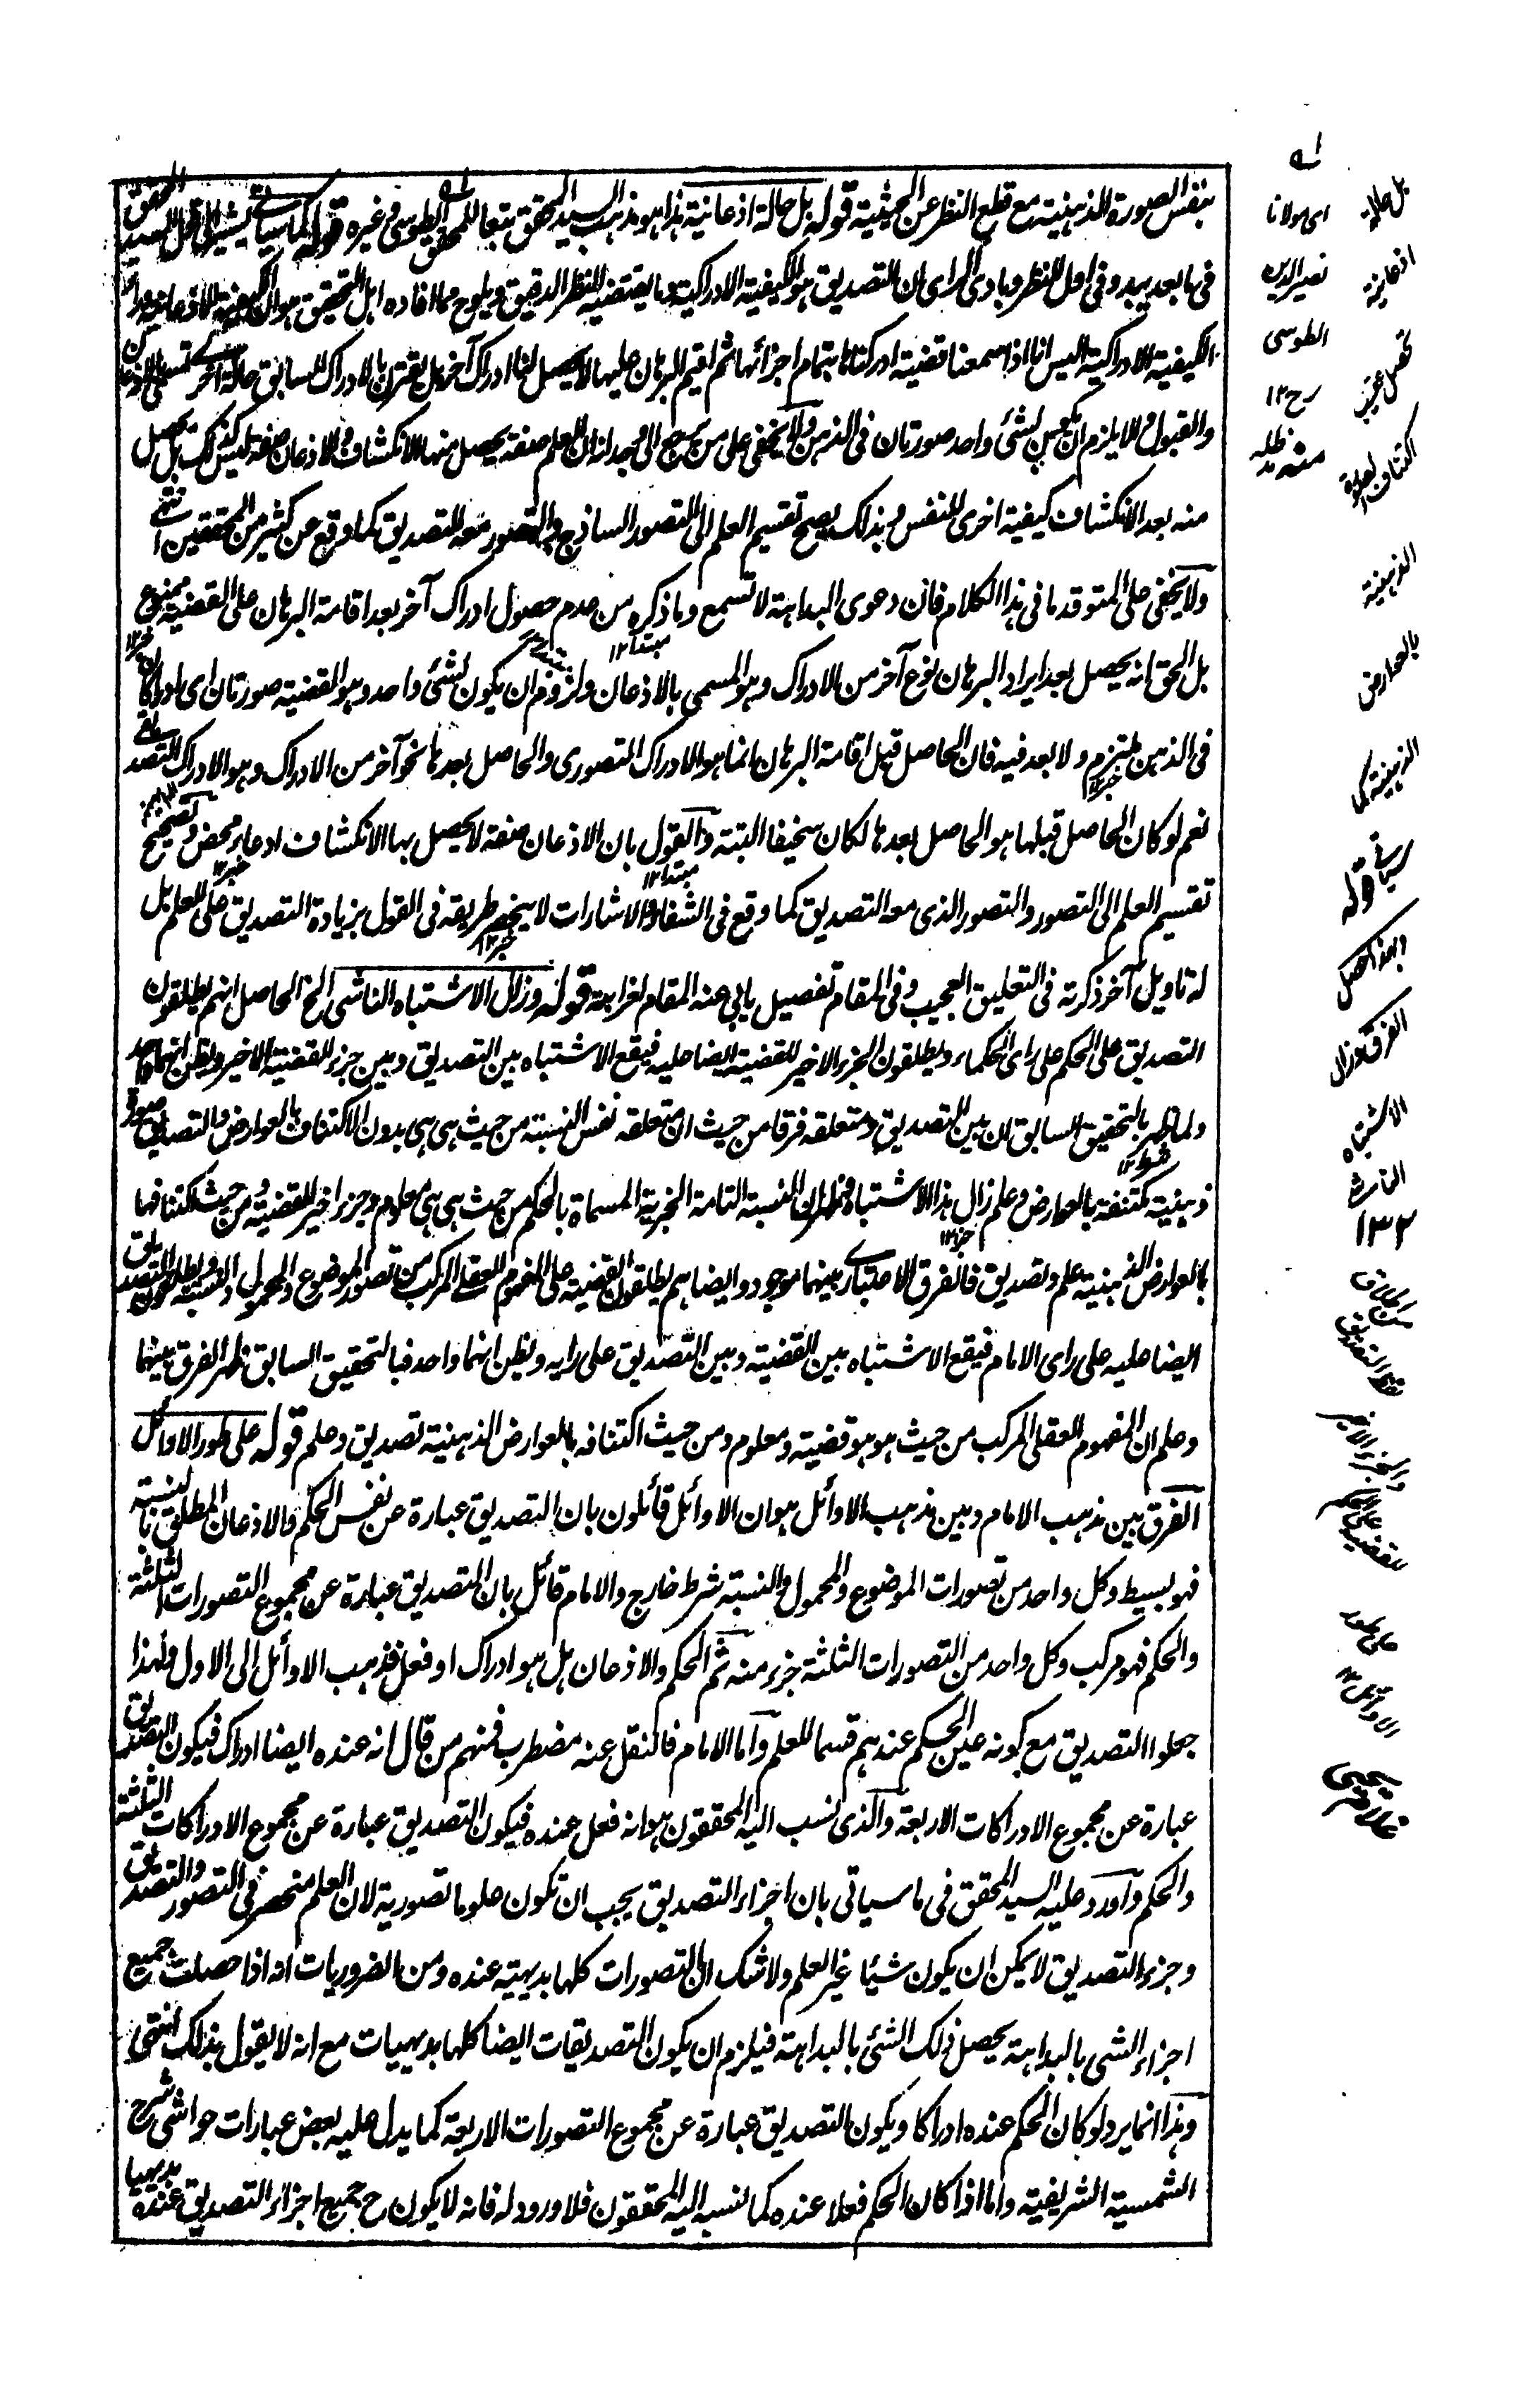 بنفس الصورة الذهنية مع قطع النظر عن الحيثية قوله بل حالة اذعانية هذا هو مذهب السيد المحقق تبعا للمحقق الطوسى وغيره قوله كما سياتى يشير الى قول السيد المحقق
فى ما بعد يبدو فى اول النظر وبادى الراى ان التصديق هو الكيفية الادراكية وما يقتضيه النظر الدقيق ويلوح مما افاده اهل التحقيق هو ان الكيفية الاذعانية وراء
الكيفية الادراكية اليس انا اذا سمعنا قضية ادركناها بتمام اجزائها ثم اقيم البرهان عليها لا يحصل لنا ادراك آخر بل يقترن بالادراك السابق حالة اخرى تسمى بالاذعان
والقبول والا يلزم ان يكون لشئ واحد صورتان فى الذهن ولا يخفى على من يرجع الى وجدانه ان العلم صفة يحصل منها الانكشاف والاذعان صفة ليس كذلك بل يحصل
منه بعد الانكشاف كيفية اخرى للنفس وبذلك يصح تقسيم العلم الى التصور الساذج والتصور معه التصديق كما وقع عن كثير من المحققين انتهى
ولا يخفى على المتوقد ما فى هذا الكلام فان دعوى البداهة لا تسمع وما ذكره من عدم حصول ادراك آخر بعد اقامة البرهان على القضية ممنوع
بل الحق انه يحصل بعد ايراد البرهان نوع آخر من الادراك وهو المسمى بالاذعان ولزوم ان يكون لشئ واحد وهو القضية صورتان اى ادراكان
فى الذهن ملتزم ولا بعد فيه فان الحاصل قبل اقامة البرهان انما هو الادراك التصورى والحاصل بعدها نحو آخر من الادراك وهو الادراك التصديقى
نعم لو كان الحاصل قبلها هو الحاصل بعدها لكان سخيفا البتة والقول بان الاذعان صفة لا يحصل بها الانكشاف ادعاء محض وتصحيح
تقسيم العلم الى التصور والتصور الذى معه التصديق كما وقع فى الشفاء والاشارات لا ينحصر طريقه فى القول بزيادة التصديق على العلم بل
له تاويل آخر ذكرته فى التعليق العجيب وفى المقام تفصيل يابى عنه المقام لغرابته قوله وزال الاشتباه الناشى الخ الحاصل انهم يطلقون
التصديق على الحكم على راى الحكماء ويطلقون الجزء الاخير للقضية ايضا عليه فيقع الاشتباه بين التصديق وبين جزء القضية الاخير ويظن انهما واحد
ولما ظهر بالتحقيق السابق ان بين التصديق ومتعلقه فرقا من حيث ان متعلقه نفس النسبة من حيث هى هى بدون الاكتناف بالعوارض والتصديق صورة
ذهنية مكتنفة بالعوارض وعلم زال هذا الاشتباه فظهر ان النسبة التامة الخبرية المسماة بالحكم من حيث هى هى معلوم وجزء اخير للقضية ومن حيث اكتنافها
بالعوارض الذهنية علم وتصديق فالفرق الاعتبارى بينهما موجود وايضا هم يطلقون القضية على المفهوم العقلى المركب من تصور الموضوع والمحمول والنسبة ويطلقون التصديق
ايضا عليه على راى الامام فيقع الاشتباه بين القضية وبين التصديق على رايه ويظن انهما واحد فبالتحقيق السابق ظهر الفرق بينهما
وعلم ان المفهوم العقلى المركب من حيث هو هو قضية ومعلوم ومن حيث اكتنافه بالعوارض الذهنية تصديق وعلم قوله على طور الاوائل
الفرق بين مذهب الامام وبين مذهب الاوائل هو ان الاوائل قائلون بان التصديق عبارة عن نفس الحكم والاذعان المطلق بالنسبة
فهو بسيط وكل واحد من تصورات الموضوع والمحمول والنسبة شرط خارج والامام قائل بان التصديق عبارة عن مجموع التصورات الثلثة
والحكم فهو مركب وكل واحد من التصورات الثلثة جزء منه ثم الحكم والاذعان هل هو ادراك او فعل فذهب الاوائل الى الاول ولهذا
جعلوا التصديق مع كونه عين الحكم عندهم قسما للعلم واما الامام فالنقل عنه مضطرب فمنهم من قال انه عنده ايضا ادراك فيكون التصديق
عبارة عن مجموع الادراكات الاربعة والذى نسب اليه المحققون هو انه فعل عنده فيكون التصديق عبارة عن مجموع الادراكات الثلثة
والحكم واورد عليه السيد المحقق فى ما سياتى بان اجزاء التصديق يجب ان تكون علوما تصورية لان العلم منحصر فى التصور والتصديق
وجزء التصديق لا يمكن ان يكون شيئا غير العلم ولا شك ان التصورات كلها بديهية عنده ومن الضروريات انه اذا حصلت جميع
اجزاء الشى بالبداهة يحصل ذلك الشئ بالبداهة فيلزم ان يكون التصديقات ايضا كلها بديهيات مع انه لا يقول بذلك انتهى
وهذا انما يرد لو كان الحكم عنده ادراكا ويكون التصديق عبارة عن مجموع التصورات الاربعة كما يدل عليه بعض عبارات حواشى شرح
الشمسية الشريفية واما اذا كان الحكم فعلا عنده كما نسبه اليه المحققون فلا ورود له فانه لا يكون ح جميع اجزاء التصديق عنده بديهيا
اى مولانا
نصير الدين
الطوسى
رح ١٢
منه مد ظله
بل حالة
اذعانية
تحصل عقيب
اكتناف الصورة
الذهنية
بالعوارض
الذهنية كما
سياتى قوله
وبهذا حصل
الفرق وزال
الاشتباه
الناشى
١٣٢
من اطلاق
التصديق
والجزء الاخير
للقضية
على طور
الاوائل ١٢
غلام يحيى